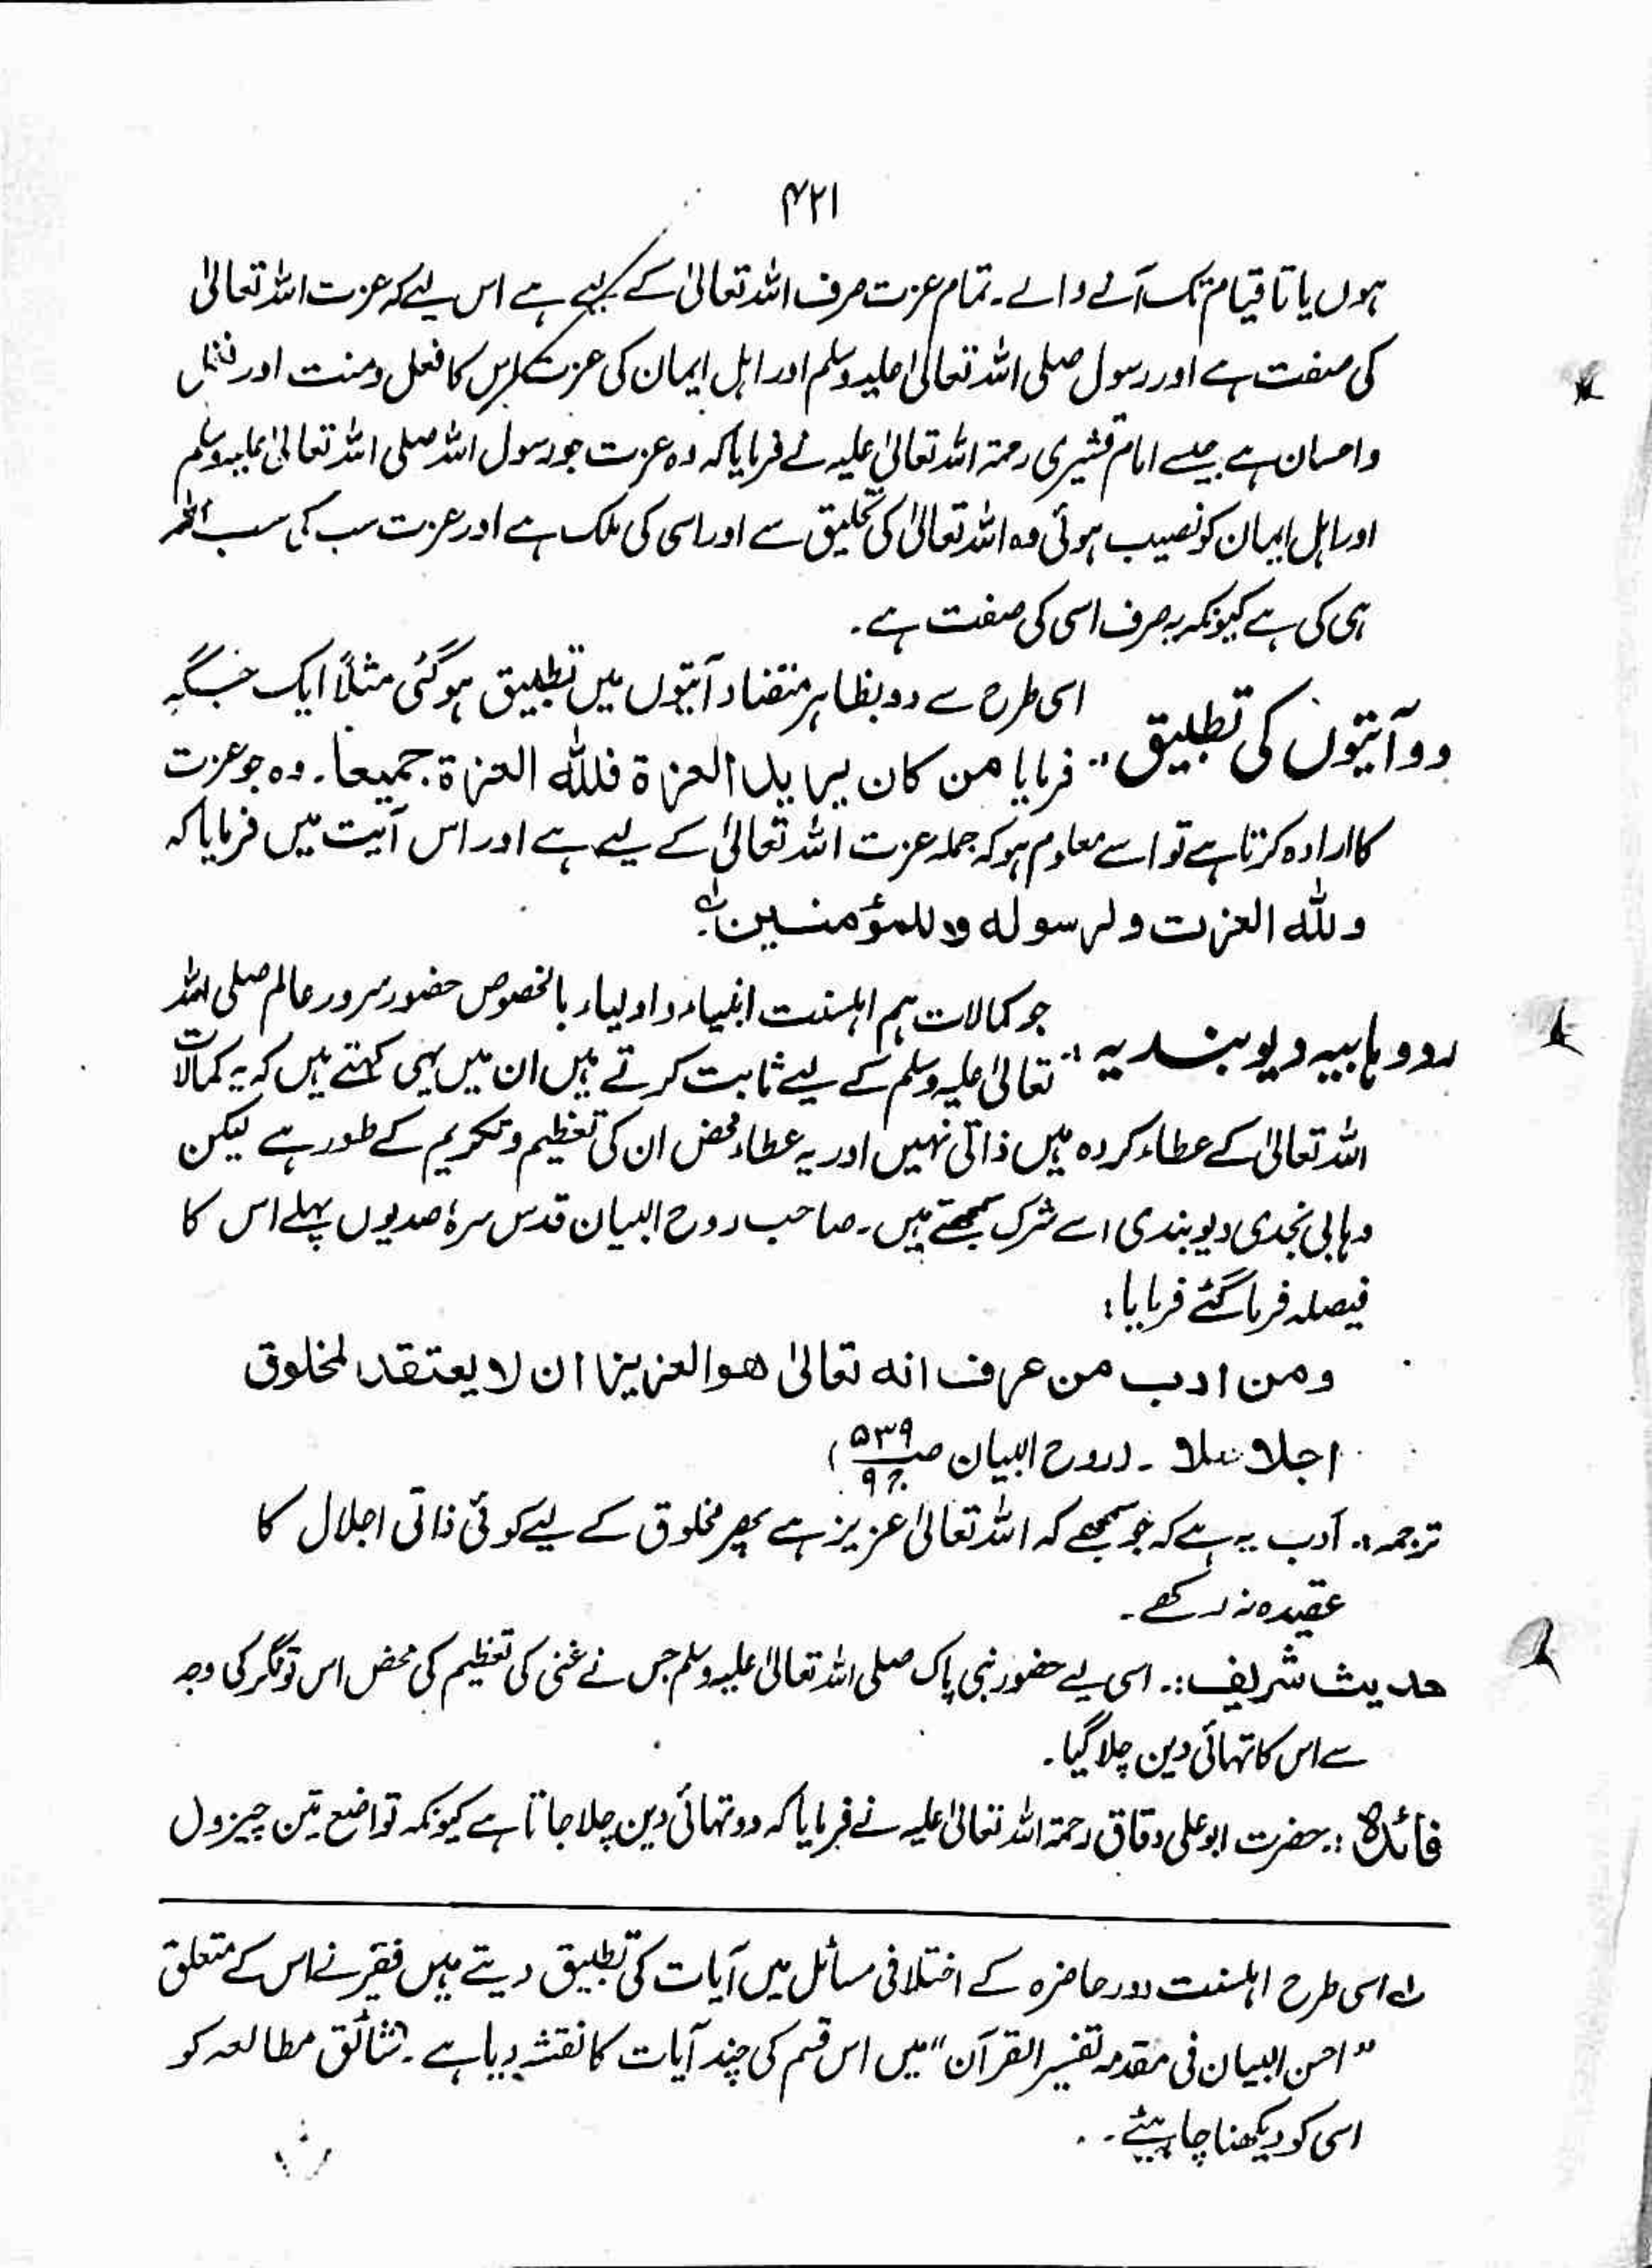 ۴۲۱
ہوں یا تا قیام تک آنے والے۔ تمام عزت صرف اللہ تعالیٰ کے لیے ہے اس لیے کہ عزت اللہ تعالیٰ
کی صفت ہے اور رسول صلی اللہ تعالیٰ علیہ وسلم اور اہل ایمان کی عزت اس کا فعل و منت اور فضل
و احسان ہے جیسے امام قشیری رحمۃ اللہ تعالیٰ علیہ نے فرمایا کہ وہ عزت جو رسول اللہ صلی اللہ تعالیٰ علیہ وسلم
اور اہل ایمان کو نصیب ہوئی وہ اللہ تعالیٰ کی تخلیق سے اور اسی کی ملک ہے اور عزت سب کی سب اللہ
ہی کی ہے کیونکہ یہ صرف اسی کی صفت ہے۔
دو آیتوں کی تطبیق :۔ اسی طرح سے دو بظاہر متضاد آیتوں میں تطبیق ہو گئی مثلاً ایک جگہ
فرمایا من کان یرید العزۃ فللّٰہ العزۃ جمیعا۔ وہ جو عزت
کا ارادہ کرتا ہے تو اسے معلوم ہو کہ جملہ عزت اللہ تعالیٰ کے لیے ہے اور اس آیت میں فرمایا کہ
وللّٰہ العزت ولرسولہ وللمؤمنین۔ لہ
رد وہابیہ دیوبندیہ :۔ جو کمالات ہم اہلسنت انبیاء و اولیاء بالخصوص حضور سرور عالم صلی اللہ
تعالیٰ علیہ وسلم کے لیے ثابت کرتے ہیں ان میں یہی کہتے ہیں کہ یہ کمالات
اللہ تعالیٰ کے عطاء کردہ ہیں ذاتی نہیں اور یہ عطاء محض ان کی تعظیم و تکریم کے طور ہے لیکن
وہابی نجدی دیوبندی اسے شرک سمجھتے ہیں۔ صاحب روح البیان قدس سرہٗ صدیوں پہلے اس کا
فیصلہ فرما گئے فرمایا :
ومن ادب من عرف انہ تعالیٰ ھو العزیز ان لا یعتقد لمخلوق
اجلالا۔ (روح البیان ص ۵۳۹ ج ۹)
ترجمہ :۔ ادب یہ ہے کہ جو سمجھے کہ اللہ تعالیٰ عزیز ہے پھر مخلوق کے لیے کوئی ذاتی اجلال کا
عقیدہ نہ رکھے۔
حدیث شریف :۔ اسی لیے حضور نبی پاک صلی اللہ تعالیٰ علیہ وسلم جس نے غنی کی تعظیم کی محض اس تونگر کی وجہ
سے اس کا تہائی دین چلا گیا۔
فائدہ :۔ حضرت ابو علی دقاق رحمۃ اللہ تعالیٰ علیہ نے فرمایا کہ دو تہائی دین چلا جاتا ہے کیونکہ تواضع تین چیزوں
لہ اسی طرح اہلسنت دور حاضرہ کے اختلافی مسائل میں آیات کی تطبیق دیتے ہیں فقیر نے اس کے متعلق
"احسن البیان فی مقدمہ تفسیر القرآن" میں اس قسم کی چند آیات کا نقشہ دیا ہے۔ شائق مطالعہ کو
اسی کو دیکھنا چاہیئے۔۔